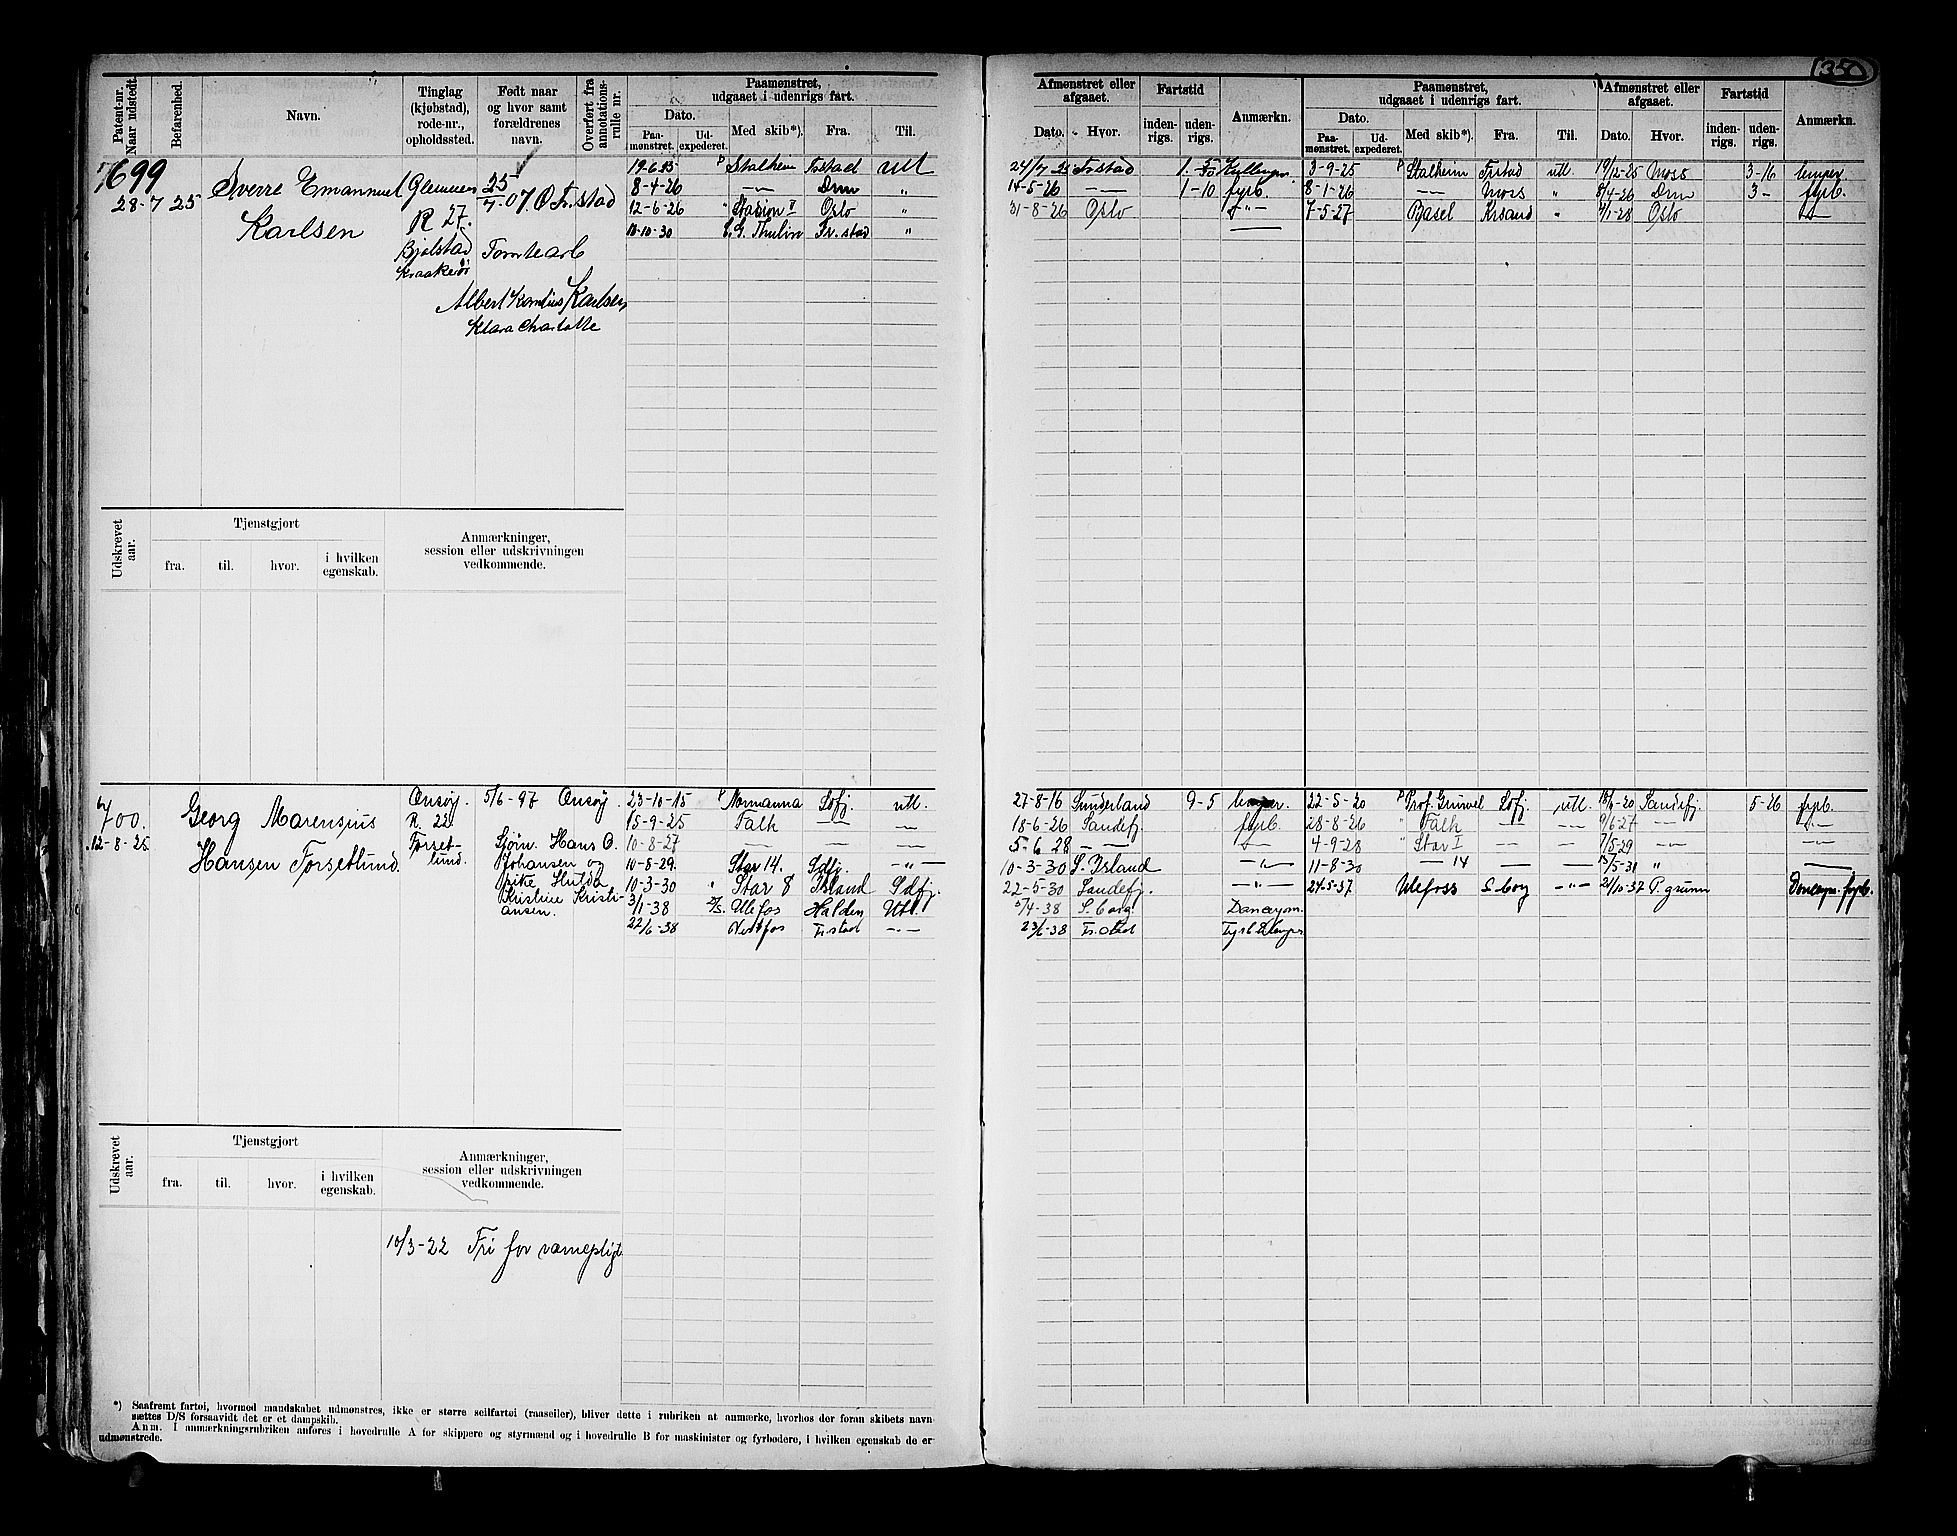 350
Patent-nr. Naar udstedt.
Befarenhed.
Navn.
Tinglag (kjøbstad), rode-nr., opholdssted.
Født naar og hvor samt forældrenes navn.
Overført fra annotations-rulle nr.
Paamønstret, udgaaet i udenrigs fart.
Dato.
Paa-mønstret.
Ud-expederet.
Med skib*).
Fra.
Til.
Afmønstret eller afgaaet.
Dato.
Hvor.
Fartstid
inden-rigs.
uden-rigs.
Anmærkn.
Paamønstret, udgaaet i udenrigs fart.
Dato.
Paa-mønstret.
Ud-expederet.
Med skib*).
Fra.
Til.
Afmønstret eller afgaaet.
Dato.
Hvor.
Fartstid
inden-rigs.
uden-rigs.
Anmærkn.
699
28-7 25
Sverre Emanuel
Karlsen
Glemmen
R 27.
Bjølstad
Kraakerøi
25/7-07. Ø Fr.stad
Tomtearb
Albert Kornelius Karlsen
Klara Charlotte
19-6 25 Stalheim Frstad utl
8-4-26 — Drm "
12-6-26 " II Oslo "
10-10-30 Thulin Fr.stad "
24/7 25 Frstad 3-9-25 Stalheim Frstad utl. 19/12-25 Moss 3-16 lemper
14-5-26 — 1-10 fyrb. 8-1-26 — Moss " 8/4-26 Drm 3- fyrb.
31-8-26 Oslo —"— 7-5-27 Basel Krsand " 4/1-28 Oslo —
Udskrevet aar.
Tjenstgjort
fra.
til.
hvor.
i hvilken egenskab.
Anmærkninger, session eller udskrivningen vedkommende.
700.
12-8-25
Georg Marensius
Hansen Forsetlund.
Onsøy.
R. 22
Forset-
lund.
5/6-97 Onsøy.
Sjøm. Hans O.
Johansen og
Hulda
Kristine Kristi-
ansen.
23-10-15 Normanna Sdfj. utl.
15-9-25 Falk — —
10-8-27 — — —
10-8-29. Star 14. Sdfj. —"—
10-3-30 " Star 8 Island Sdfj.
3/1-38 D/S. Ulefos Halden Utl.
22/6-38 Vestfos Fr.stad —"—
27-8-16 Sunderland 9-5 lemper. 22-5-20 Prof. Gruvel Sdfj. utl. 18/9-20 Sandefj. 5-26 fyrb.
18-6-26 Sandefj. fyrb. 28-8-26 " Falk — — 9/6-27 —"— —"—
5-6 28 — — — 4-9-28 " Star I — — 7/5-29 —"— —
10-3-30 S. Island —"— 11-8-30 — 14 — —"— 13/5-31 " —
22-5-30 Sandefj. —"— 24-5-37 Ulefoss S.borg —"— 21/10-37 P. grunn Donkeym. fyrb.
5/4-38 S.borg. Donkeym.
23/6-38 Fr.stad Fyrb & lemper
Udskrevet aar.
Tjenstgjort
fra.
til.
hvor.
i hvilken egenskab.
Anmærkninger, session eller udskrivningen vedkommende.
10/3-22 Fri for værnepligt.
*) Saafremt fartøi, hvormed mandskabet udmønstres, ikke er større seilfartøi (raaseiler), bliver dette i rubriken at anmærke, hvorhos der foran skibets navn
sættes D/S forsaavidt det er et dampskib.
Anm. I anmærkningsrubriken anføres i hovedrulle A for skippere og styrmænd og i hovedrulle B for maskinister og fyrbødere, i hvilken egenskab de er
udmønstrede.